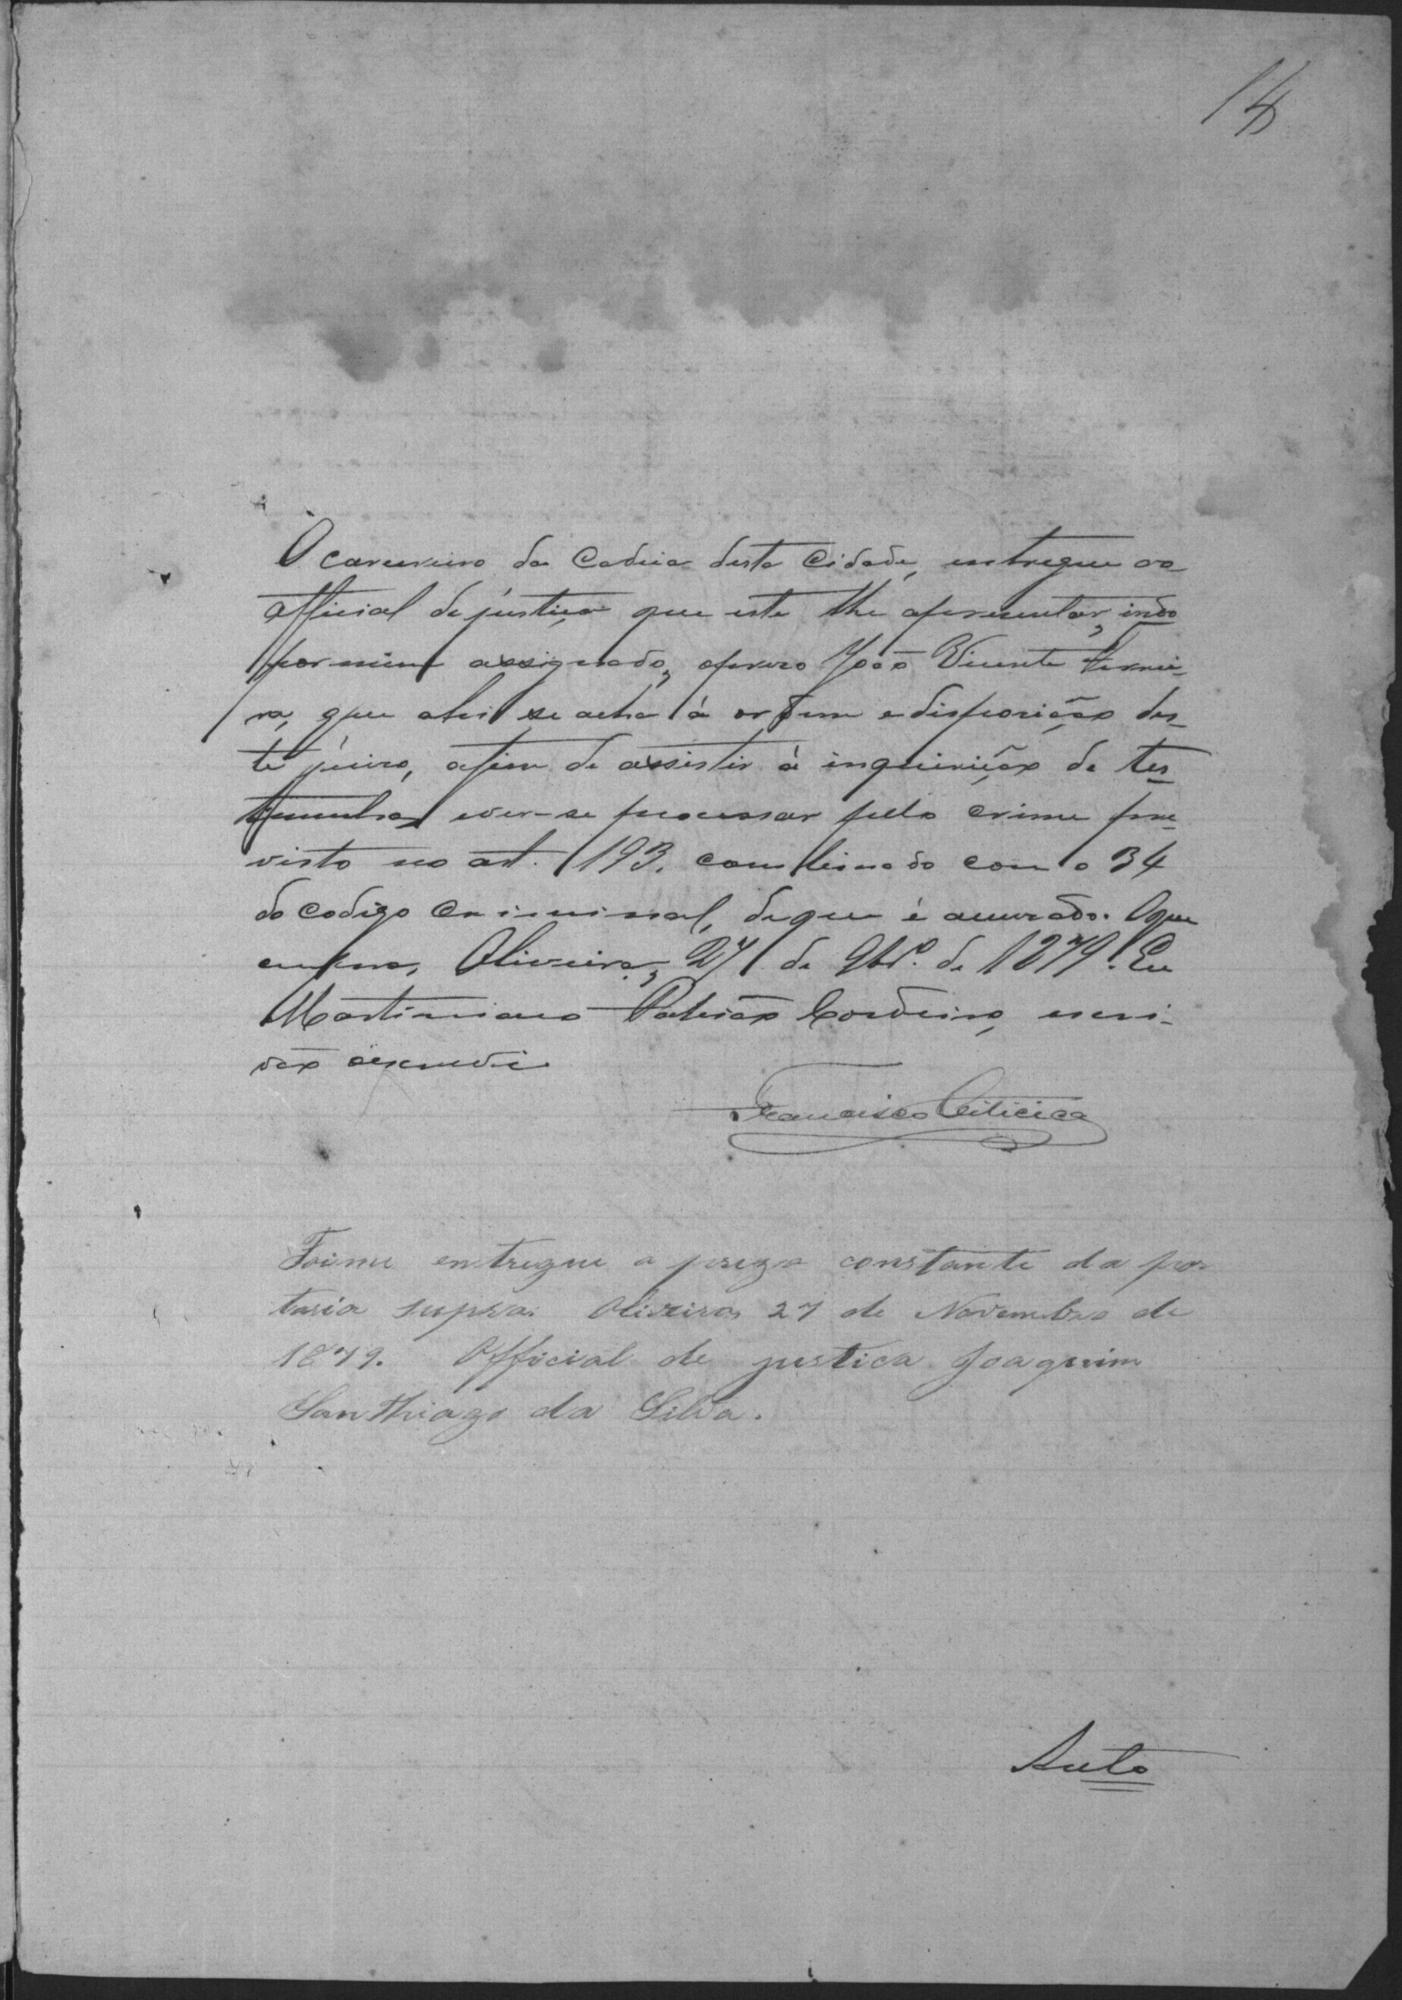 14
O carcereiro da Cadeia desta Cidade, entregue ao
official de justiça que este lhe apresentar, indo
por mim assignado, o preso João Vicente Ferrei-
ra, que ahi se acha á ordem e disposição des-
te juizo, afim de assistir á inquirição de tes-
timunhas e ver-se processar pelo crime pre-
visto no art. 193. combinado com o 34
do codigo criminal, de que é accusado. O que
cumpra, Oliveira, 27 de 9br.º de 1879. Eu
Martiniano Cordeiro, escri-
vão escrevi
Francisco
Foime entregue o prezo constante da por
taria supra. Oliveira 27 de Novembro de
1879. Official de justica Joaquim
San Thiago da Silva.
Auto